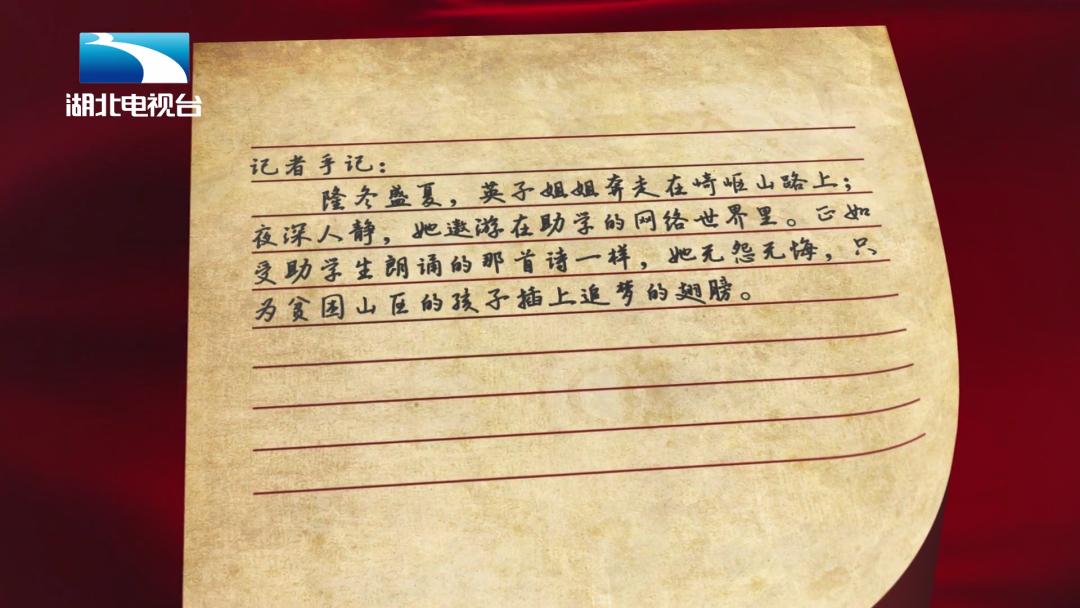 湖北电视台
记者手记：
隆冬盛夏，英子姐姐奔走在崎岖山路上；
夜深人静，她遨游在助学的网络世界里。正如
受助学生朗诵的那首诗一样，她无怨无悔，只
为贫困山区的孩子插上追梦的翅膀。